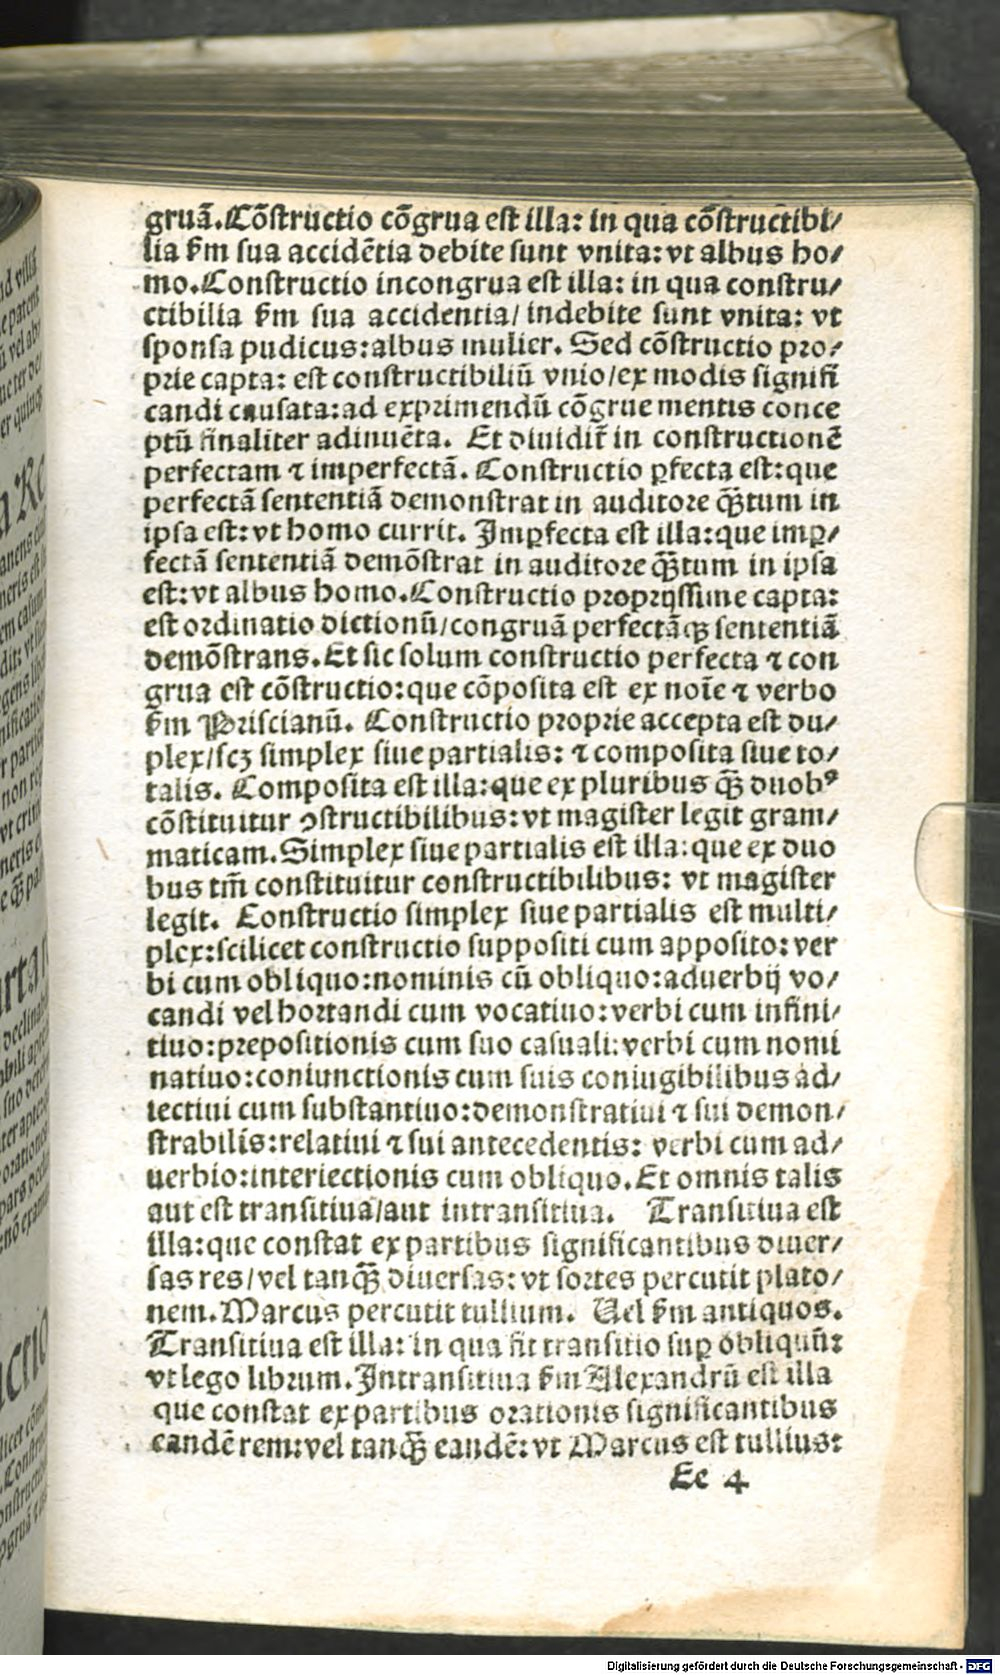 gruā. Cōſtructio cōgrua eſt illa: in qua cōſtructibi/
lia ẜm ſua accidētia debite ſunt vnita: vt albus ho/
mo. Conſtructio incongrua eſt illa: in qua conſtru/
ctibilia ẜm ſua accidentia/ indebite ſunt vnita: vt
ſponſa pudicus: albus mulier. Sed cōſtructio pro/
prie capta: eſt conſtructibiliū vnio/ex modis ſignifi
candi cauſata: ad exprimendū cōgrue mentis conce
ptū finaliter adinuēta. Et diuidit̄ in conſtructionē
perfectam ⁊ imperfectā. Conſtructio ꝑfecta eſt: que
perfectā ſententiā demonſtrat in auditore qꝫ̄tum in
ipſa eſt: vt homo currit. Imꝑfecta eſt illa: que imꝑ/
fectā ſententiā demōſtrat in auditore qꝫ̄tum in ipſa
eſt: vt albus homo. Conſtructio proprijſſime capta:
eſt ordinatio dictionū/congruā perfectāqꝫ ſententiā
demōſtrans. Et ſic ſolum conſtructio perfecta ⁊ con
grua eſt cōſtructio: que cōpoſita eſt ex noīe ⁊ verbo
ẜm Priſcianū. Conſtructio proprie accepta eſt du/
plex/ſcꝫ ſimplex ſiue partialis: ⁊ compoſita ſiue to/
talis. Compoſita eſt illa: que ex pluribus qꝫ̄ duobꝰ
cōſtituitur ꝯſtructibilibus: vt magiſter legit gram/
maticam. Simplex ſiue partialis eſt illa: que ex duo
bus tm̄ conſtituitur conſtructibilibus: vt magiſter
legit. Conſtructio ſimplex ſiue partialis eſt multi/
plex: ſcilicet conſtructio ſuppoſiti cum appoſito: ver
bi cum obliquo: nominis cū obliquo: aduerbij vo/
candi vel hortandi cum vocatiuo: verbi cum infini/
tiuo: prepoſitionis cum ſuo caſuali: verbi cum nomi
natiuo: coniunctionis cum ſuis coniugibilibus ad/
iectiui cum ſubſtantiuo: demonſtratiui ⁊ ſui demon/
ſtrabilis: relatiui ⁊ ſui antecedentis: verbi cum ad/
uerbio: interiectionis cum obliquo. Et omnis talis
aut eſt tranſitiua/aut intranſitiua. Tranſitiua eſt
illa: que conſtat ex partibus ſignificantibus diuer/
ſas res/vel tanqꝫ̄ diuerſas: vt ſortes percutit plato/
nem. Marcus percutit tullium. Uel ẜm antiquos.
Tranſitiua eſt illa: in qua fit tranſitio ſuꝑ obliquū:
vt lego librum. Intranſitiua ẜm Alexandrū eſt illa
que conſtat ex partibus orationis ſignificantibus
eandē rem: vel tanqꝫ̄ eandē: vt Marcus eſt tullius:
Ee 4
Digitalisierung gefördert durch die Deutsche Forschungsgemeinschaft - DFG